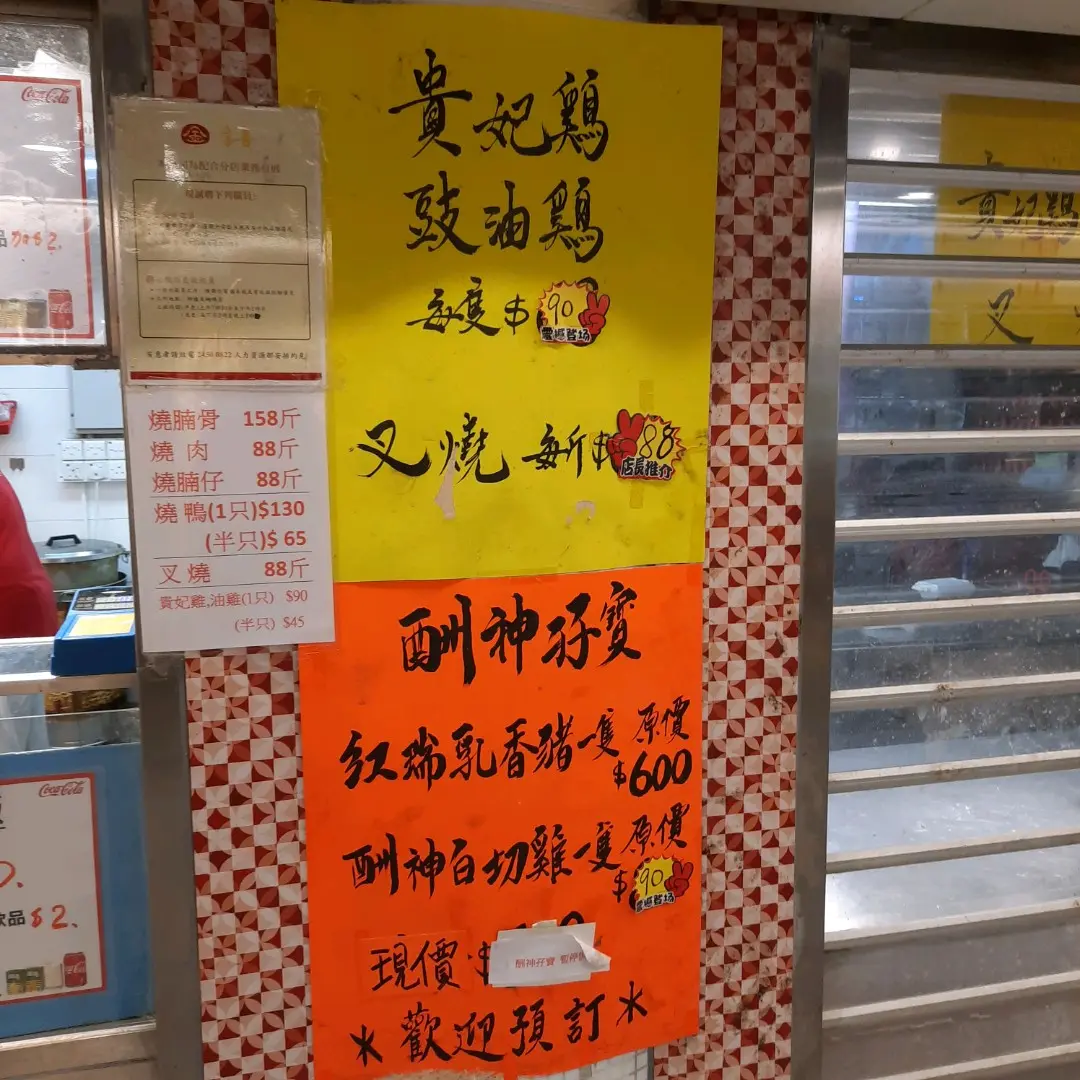 Coca-Cola
品 加$2.
現誠聘下列職員:
燒腩骨 158斤
燒 肉 88斤
燒腩仔 88斤
燒 鴨(1只)$130
(半只)$ 65
叉 燒 88斤
貴妃雞,油雞(1只) $90
(半只) $45
貴妃鷄
豉油鷄
每隻$90
震撼登场
叉燒 每斤$88
店長推介
酬神孖寶
红瑞乳香豬一隻 原價
$600
酬神白切雞一隻 原價
$90
震撼登场
現價 $
酬神孖寶 暫停
*歡迎預訂*
Coca-Cola
飲品 $2.
貴妃鷄
叉